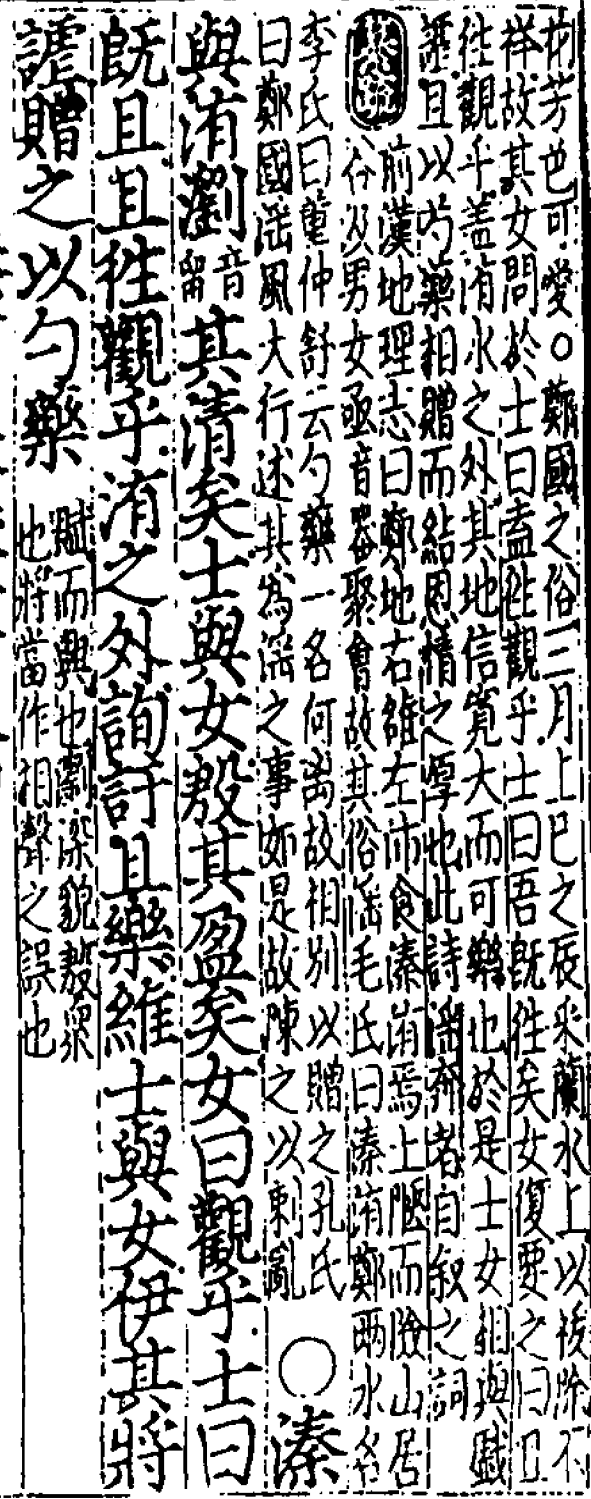 花芳色可愛○鄭國之俗三月上巳之辰采蘭水上以祓除不
祥故其女問於士曰盍徃觀乎士曰吾既徃矣女復要之曰且
徃觀乎盖洧水之外其地信寛大而可樂也於是士女相與戲
謔且以芍藥相贈而結恩情之厚也此詩淫奔者自叙之詞
前漢地理志曰鄭地右雒左泲食溱洧焉土陿而險山居
谷汲男女亟音器聚會故其俗淫毛氏曰溱洧鄭兩水名
李氏曰董仲舒云勺藥一名何离故相別以贈之孔氏
曰鄭國淫風大行述其為淫之事如是故陳之以刺亂
○溱
與洧瀏音留其清矣士與女殷其盈矣女曰觀乎士曰
既且且徃觀乎洧之外詢訏且樂維士與女伊其將
謔贈之以勺藥
賦而興也瀏深貌殷衆
也將當作相聲之誤也